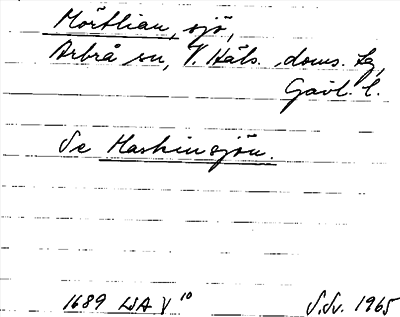 Mörtlian, sjö,
Arbrå sn, V. Häls. doms. lg,
Gävl. l.
Se Maskinsjön.
1689 LSA V 10 S.Sv. 1965